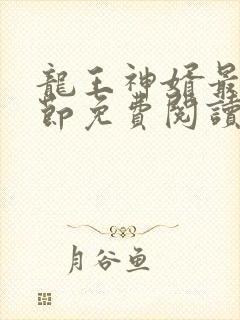 龍王神婿最
節免費閱讀
月谷魚